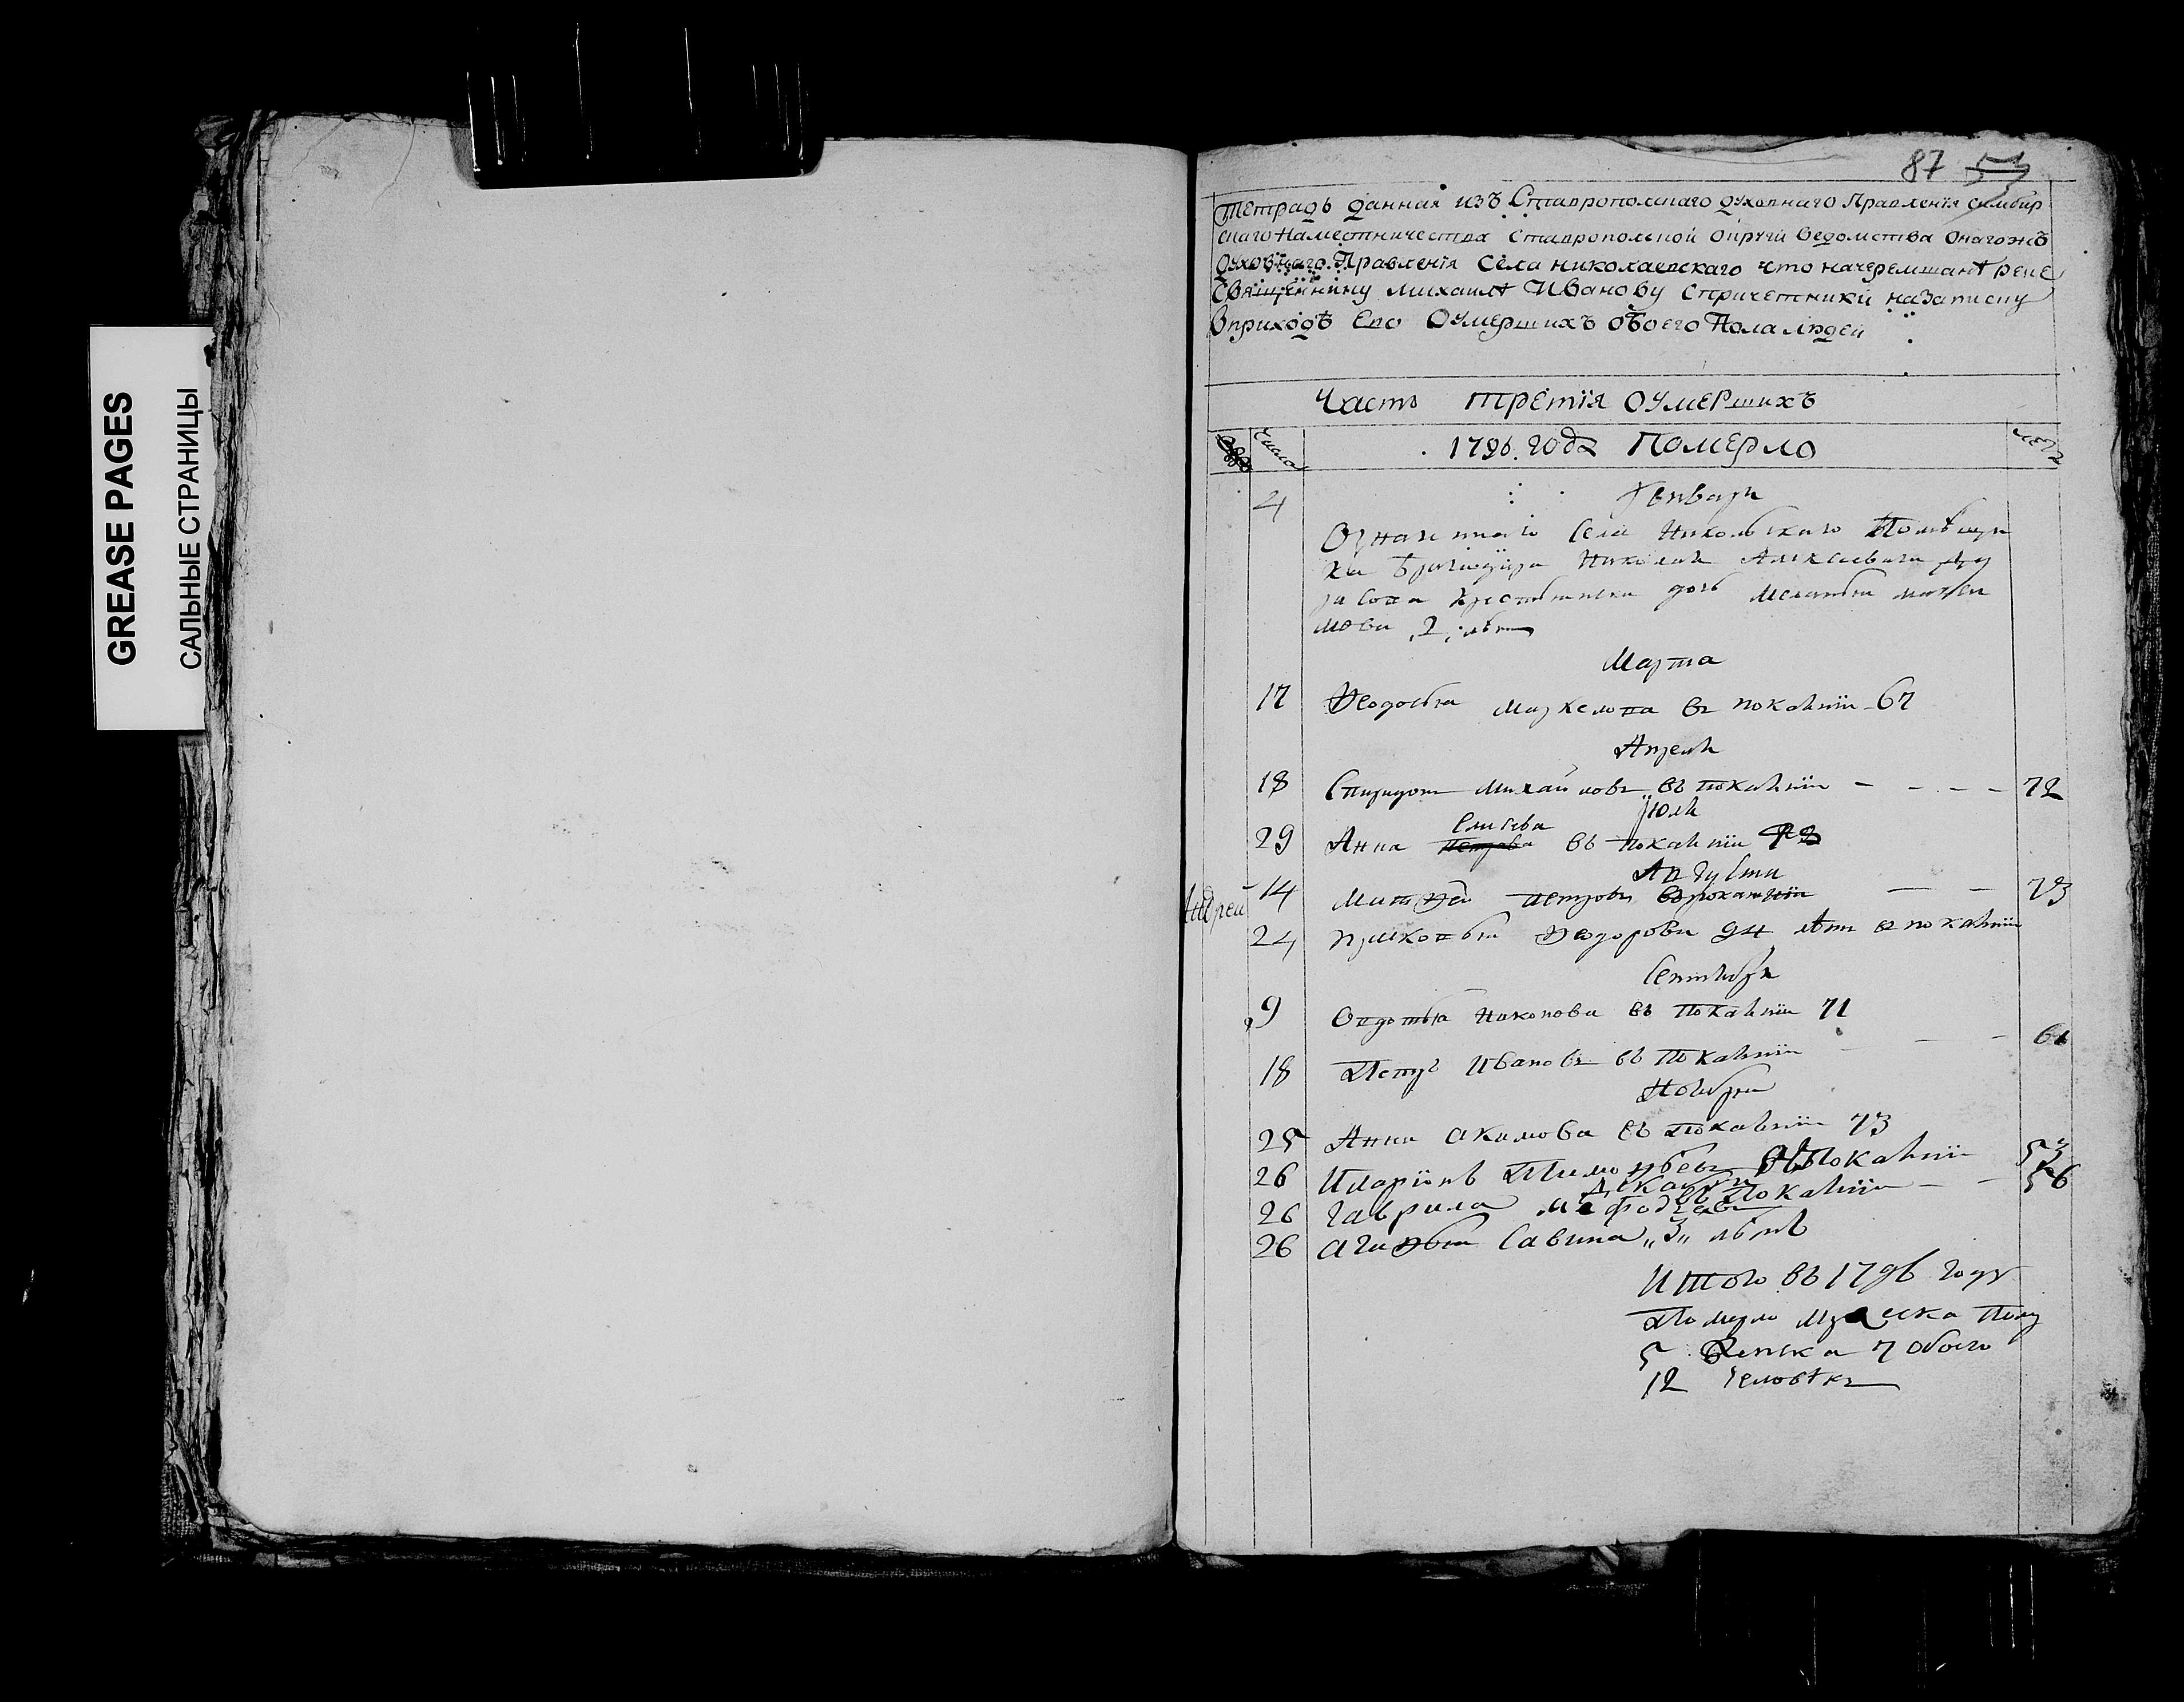 GREASE PAGES
САЛЬНЫЕ СТРАНИЦЫ
87 53
Тетрадь данная изъ Ставропольскаго духовнаго Правленія симбир
скаго наместничества Ставропольской округи ведомства онагожъ
духовнаго Правленія Села николаевскаго что начеремшанѣ реке
Священнику михаилѣ Иванову спричетники назаписку
вприходѣ Ево Оумершихъ обоего Пола людей
Часть третія оумершихъ
Числа
1796 года Померло
лета
4 Генваря
Села Никольскаго Помѣщи
ка Бригадира Николая Алексеевича Ду
расова дочь
мова 2 лѣт
Марта
17 Ѳеодосья Маркелова въ покаяніи 67
Апреля
18 Спиридон Михайловъ въ покаяніи - - - - 72
Июля
Елисева
29 Анна Петрова въ покаяніи
Августа
Андреи 14 Матѳей петровъ въ покаяніи - - 73
24 Прасковья Ѳеодорова 94 лѣт в покаяніи
Сентября
9 Овдотья Никонова въ покаяніи 71
18 Петръ Ивановъ въ покаяніи - - 61
Ноября
25 Анна Акимова въ покаяніи 73
26 Иларіонъ Тимоѳеевъ въ покаяніи 53
Декабря
26 Гаврила мефодьевъ въ покаяніи - - 56
26 Агаѳья Савина „3„ лѣтъ
Итого въ 1796 году
Померло Мужеска Полу
5 Женска 7 обоего
12 человѣкъ